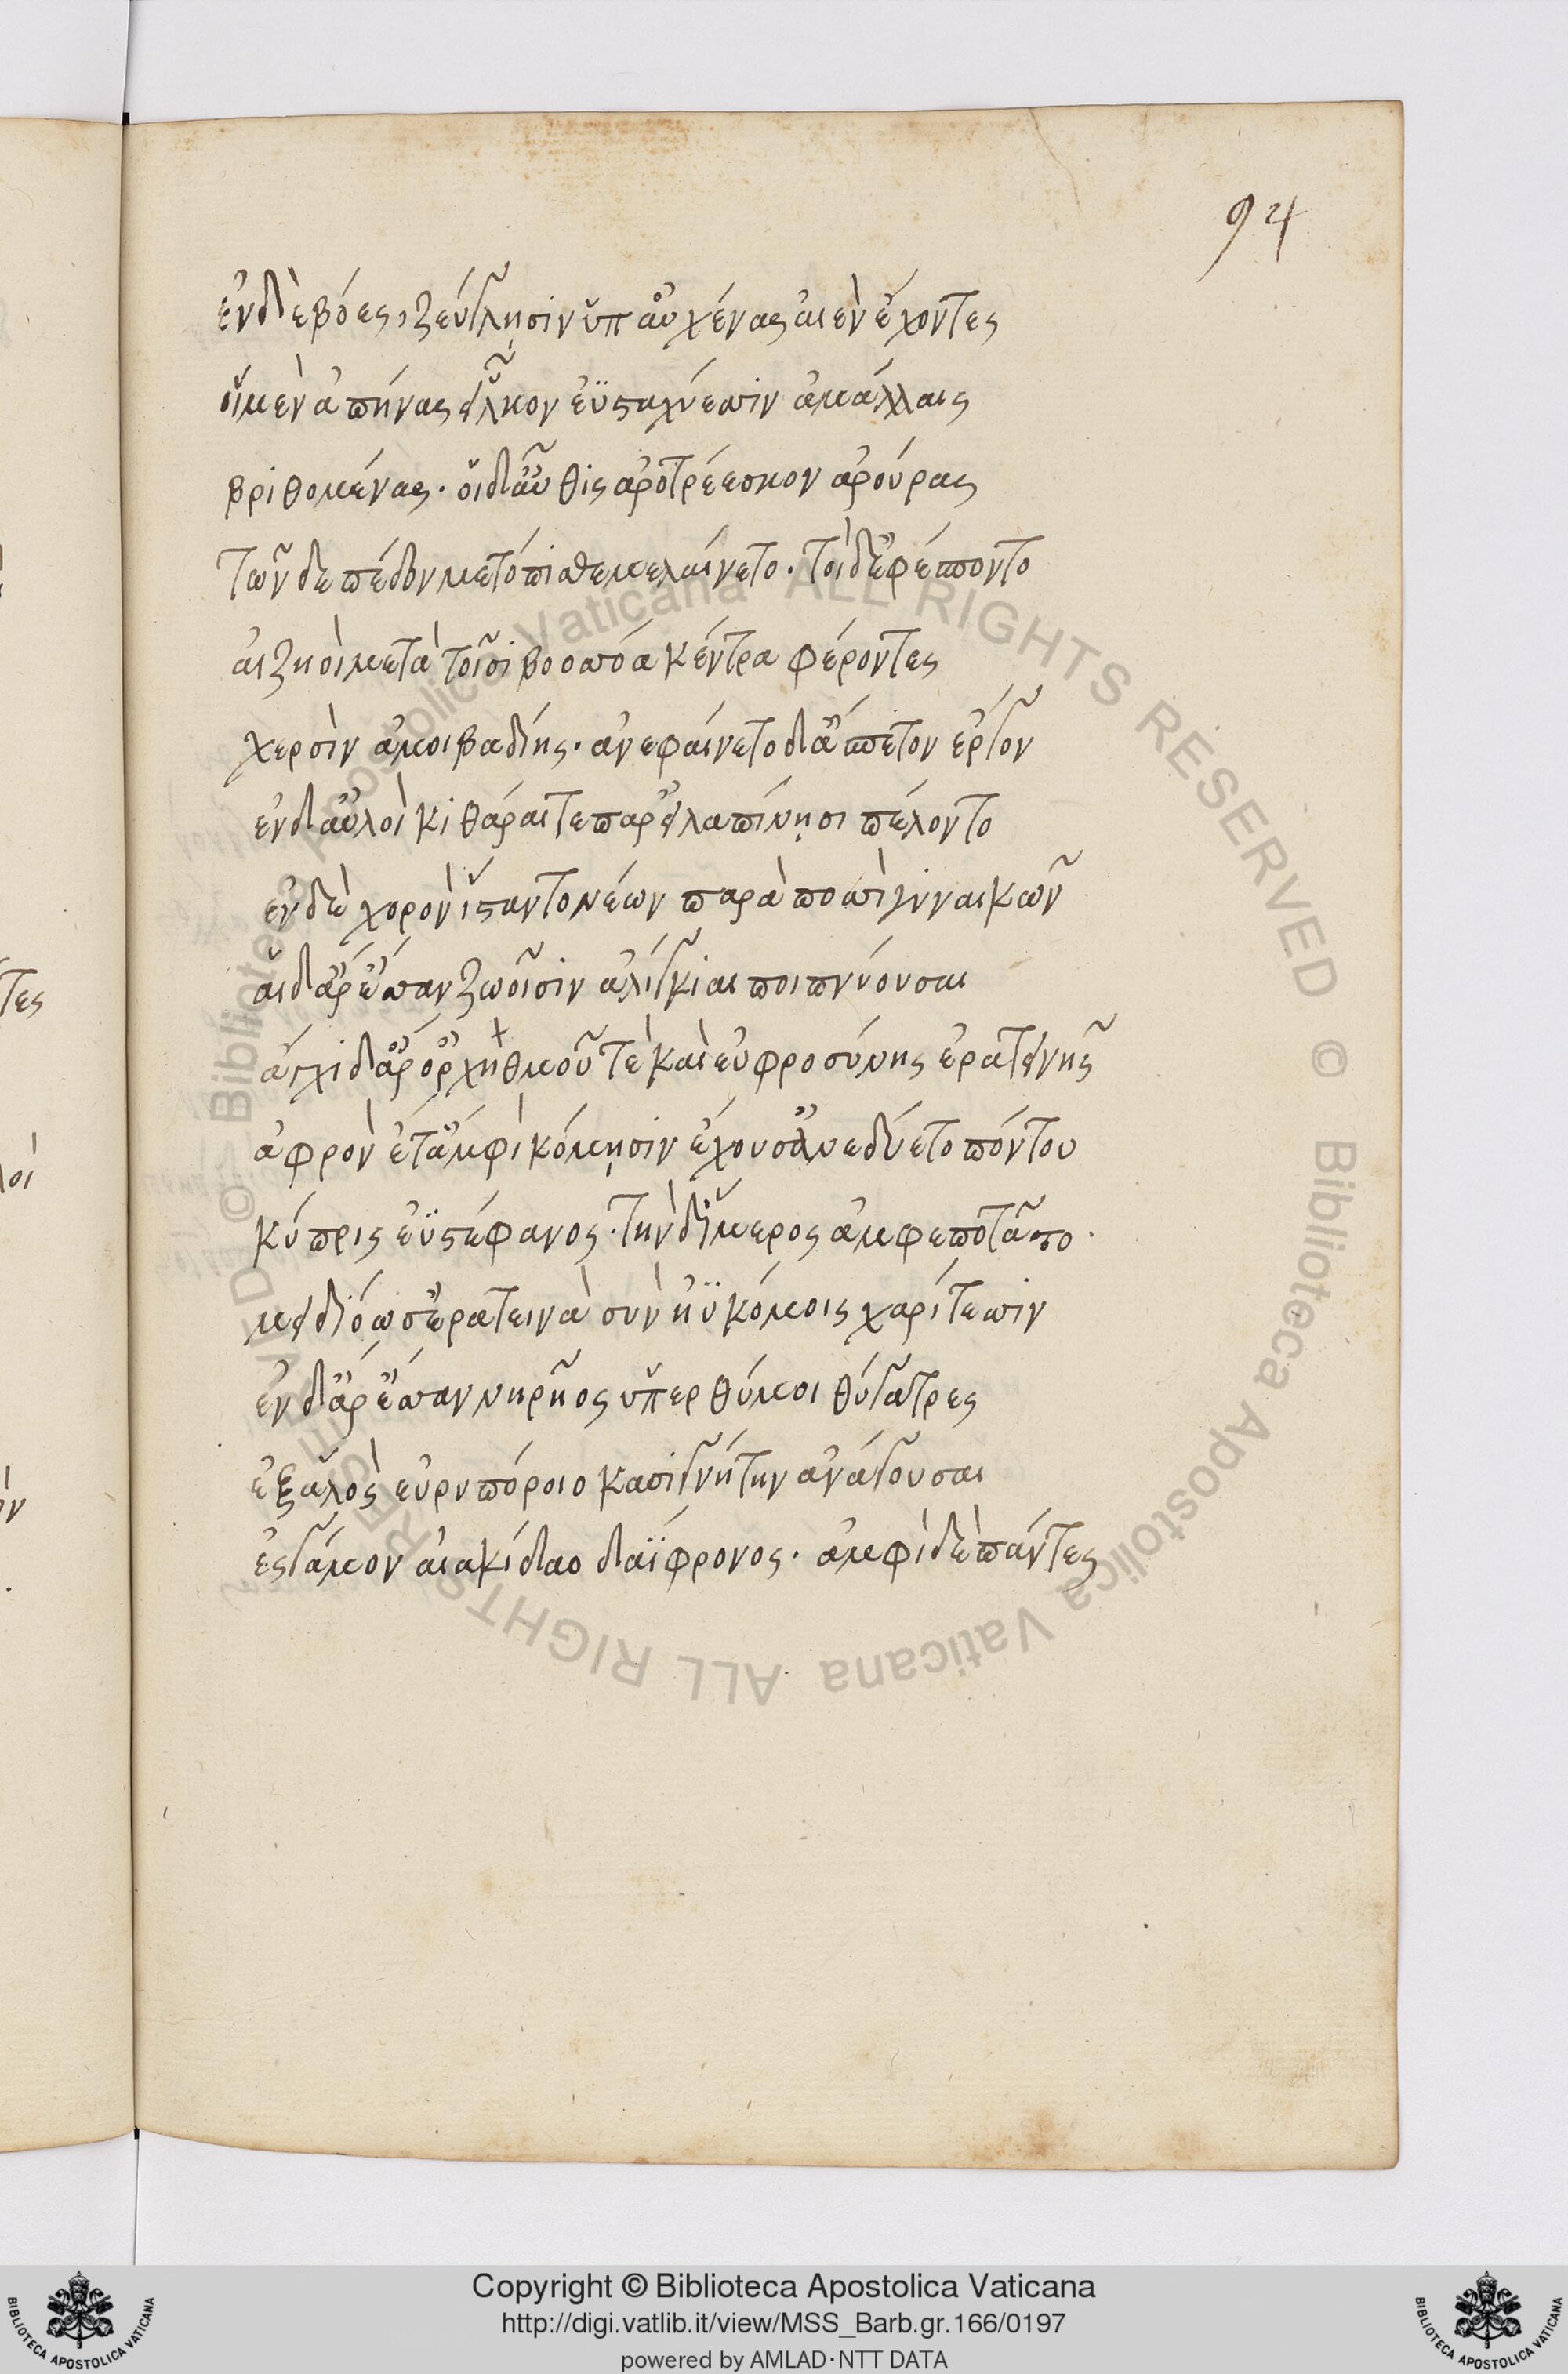 94
ἐν δὲ βόες, ζεύγλῃσιν ὑπ' αὐχένας αἰὲν ἔχοντες
οἳ μὲν ἀπήνας εἷλκον ἐϋσταχύεσσιν ἀμάλλαις
βριθομένας · οἳ δ' αὖθις ἀροτρέεσκον ἀρούρας
τῶν δὲ πέδον μετόπισθε μελαίνετο · τοὶ δ' ἐφέποντο
αἰζηοὶ μετὰ τοῖσι βοοσσόα κέντρα φέροντες
χερσὶν ἀμοιβαδίης · ἀνεφαίνετο δ' ἄσπετον ἔργον
ἐν δ' αὐλοὶ κιθάραι τε παρ' εἰλαπίνῃσι πέλοντο
ἐν δὲ χορὸν ἵσταντο νέων παρὰ ποσσὶ γυναικῶν
αἳ δ' ἄρ' ἔσσαν ζωοῖσιν ἀλίγκιαι ποιπνύουσαι
ἄγχι δ' ἄρ' ὀρχηθμοῦ τὲ καὶ εὐφροσύνης ἐρατεινῆς
ἀφρὸν ἔτ' ἀμφὶ κόμῃσιν ἔχουσ' ἀνεδύετο πόντου
κύπρις ἐϋστέφανος · τὴν δ' ἵμερος ἀμφεποτᾶτο ·
μειδιόωσ' ἐρατεινὰ σὺν ἠϋκόμοις χαρίτεσσιν
ἐν δ' ἄρ' ἔσσαν νηρῆος ὑπερθύμοι θύγατρες
ἐξ ἁλὸς εὐρυπόροιο κασιγνήτην ἀνάγουσαι
ἐς γάμον αἰακίδαο δαΐφρονος · ἀμφὶ δὲ πάντες
Copyright © Biblioteca Apostolica Vaticana
http://digi.vatlib.it/view/MSS_Barb.gr.166/0197
powered by AMLAD·NTT DATA